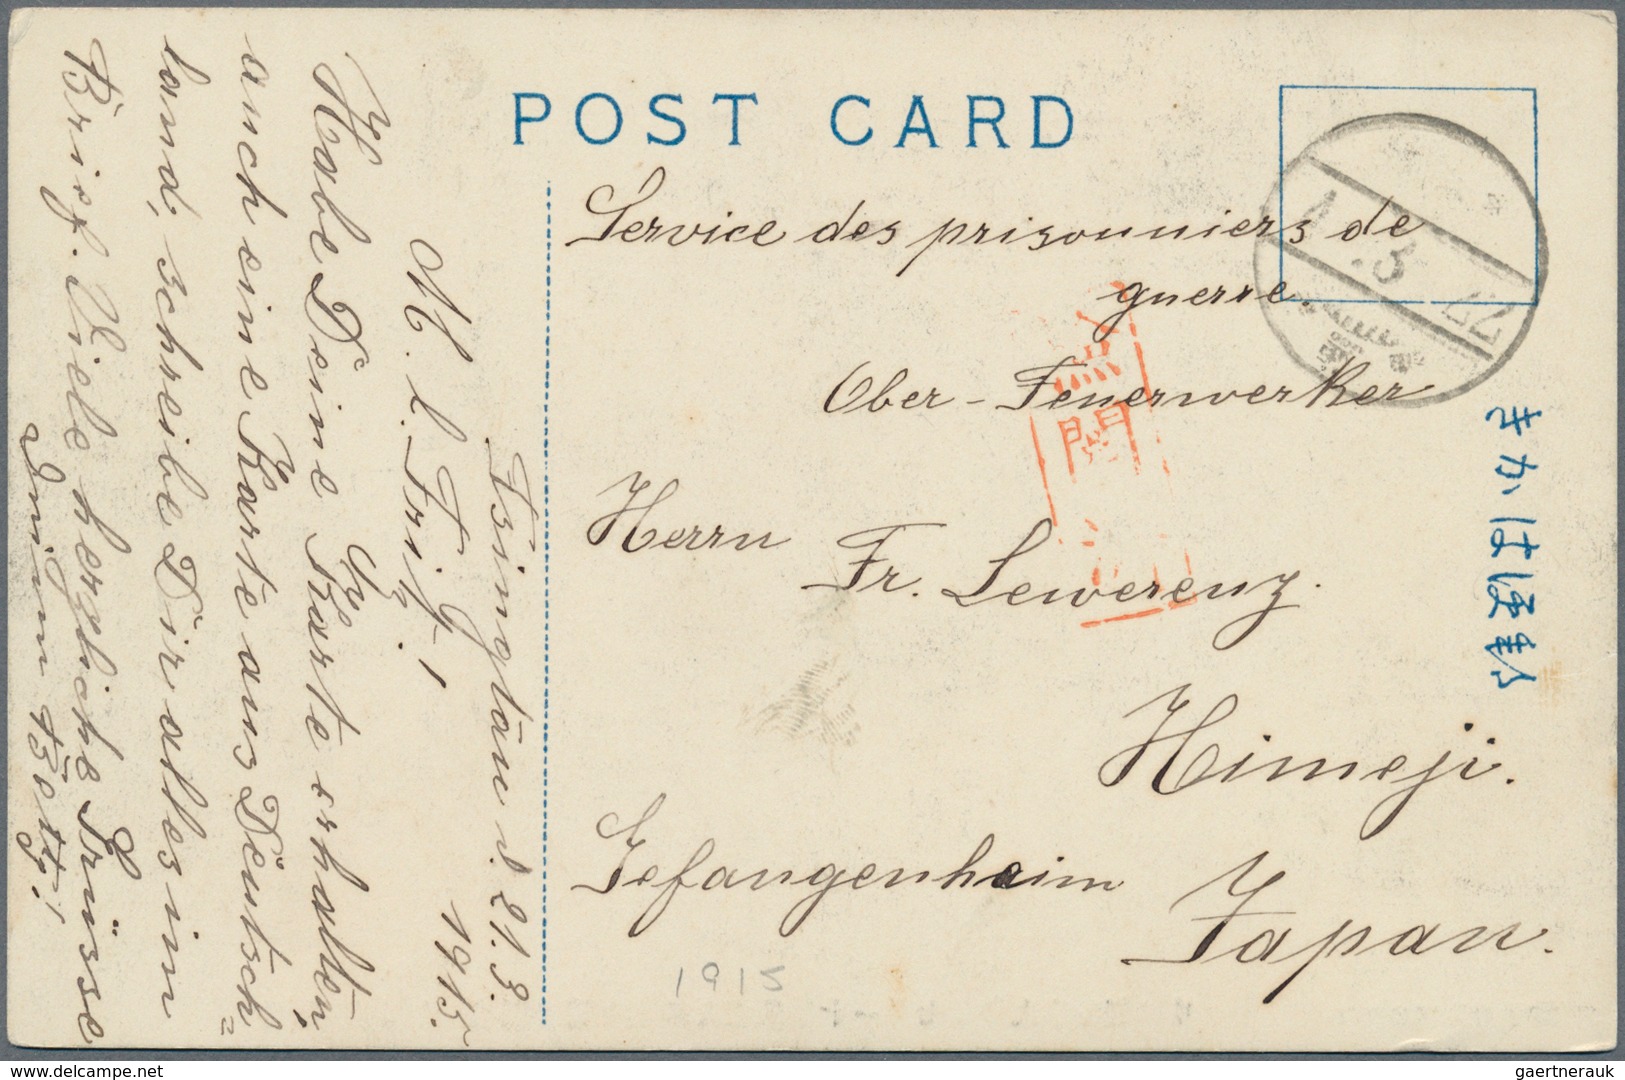 POST CARD
Service des prisonniers de
guerre.
Ober-Feuerwerker
Herrn
Fr. Lewerenz.
Himeji.
Gefangenheim
Japan.
1915
きかは便郵
閲
4.3.22
Tsingtau d. 21.3.
1915.
M. l. Fritz!
Habe Deine Karte erhalten,
auch eine Karte aus Deutsch=
land, schreibe Dir alles im
Brief. Viele herzliche Grüsse
Deinem
delcampe.net
gaertnerauk